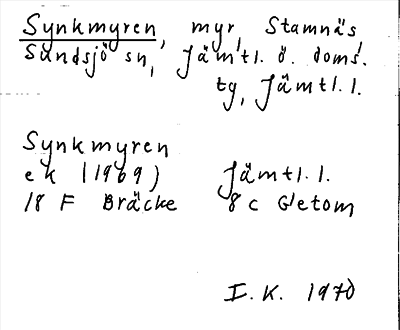 Synkmyren, myr, Stamnäs,
Sundsjö sn, Jämtl. ö. doms.
tg, Jämtl. l.
Synkmyren
ek (1969) Jämtl. l.
18 F Bräcke 8 c Gletom
I. K. 1970